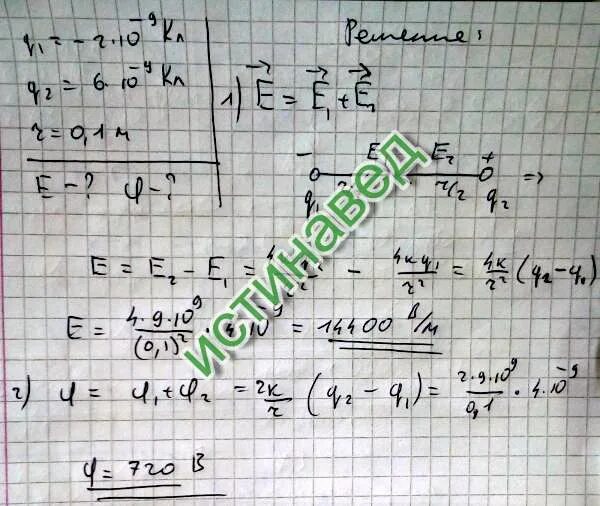 q₁ = -2·10⁻⁹ Кл
q₂ = 6·10⁻⁹ Кл
r = 0,1 м
E - ? φ - ?
Решение:
1) E = E₁ + E₂
- E E₂ +
q₁ r/2 q₂ =>
E = E₂ - E₁ = - 4kq₁/r² = 4k/r² (q₂ - q₁)
E = 4·9·10⁹/(0,1)² · 4·10⁻⁹ = 14400 В/м
2) φ = φ₁ + φ₂ = 2k/r (q₂ - q₁) = 2·9·10⁹/0,1 · 4·10⁻⁹
φ = 720 В
истинавед